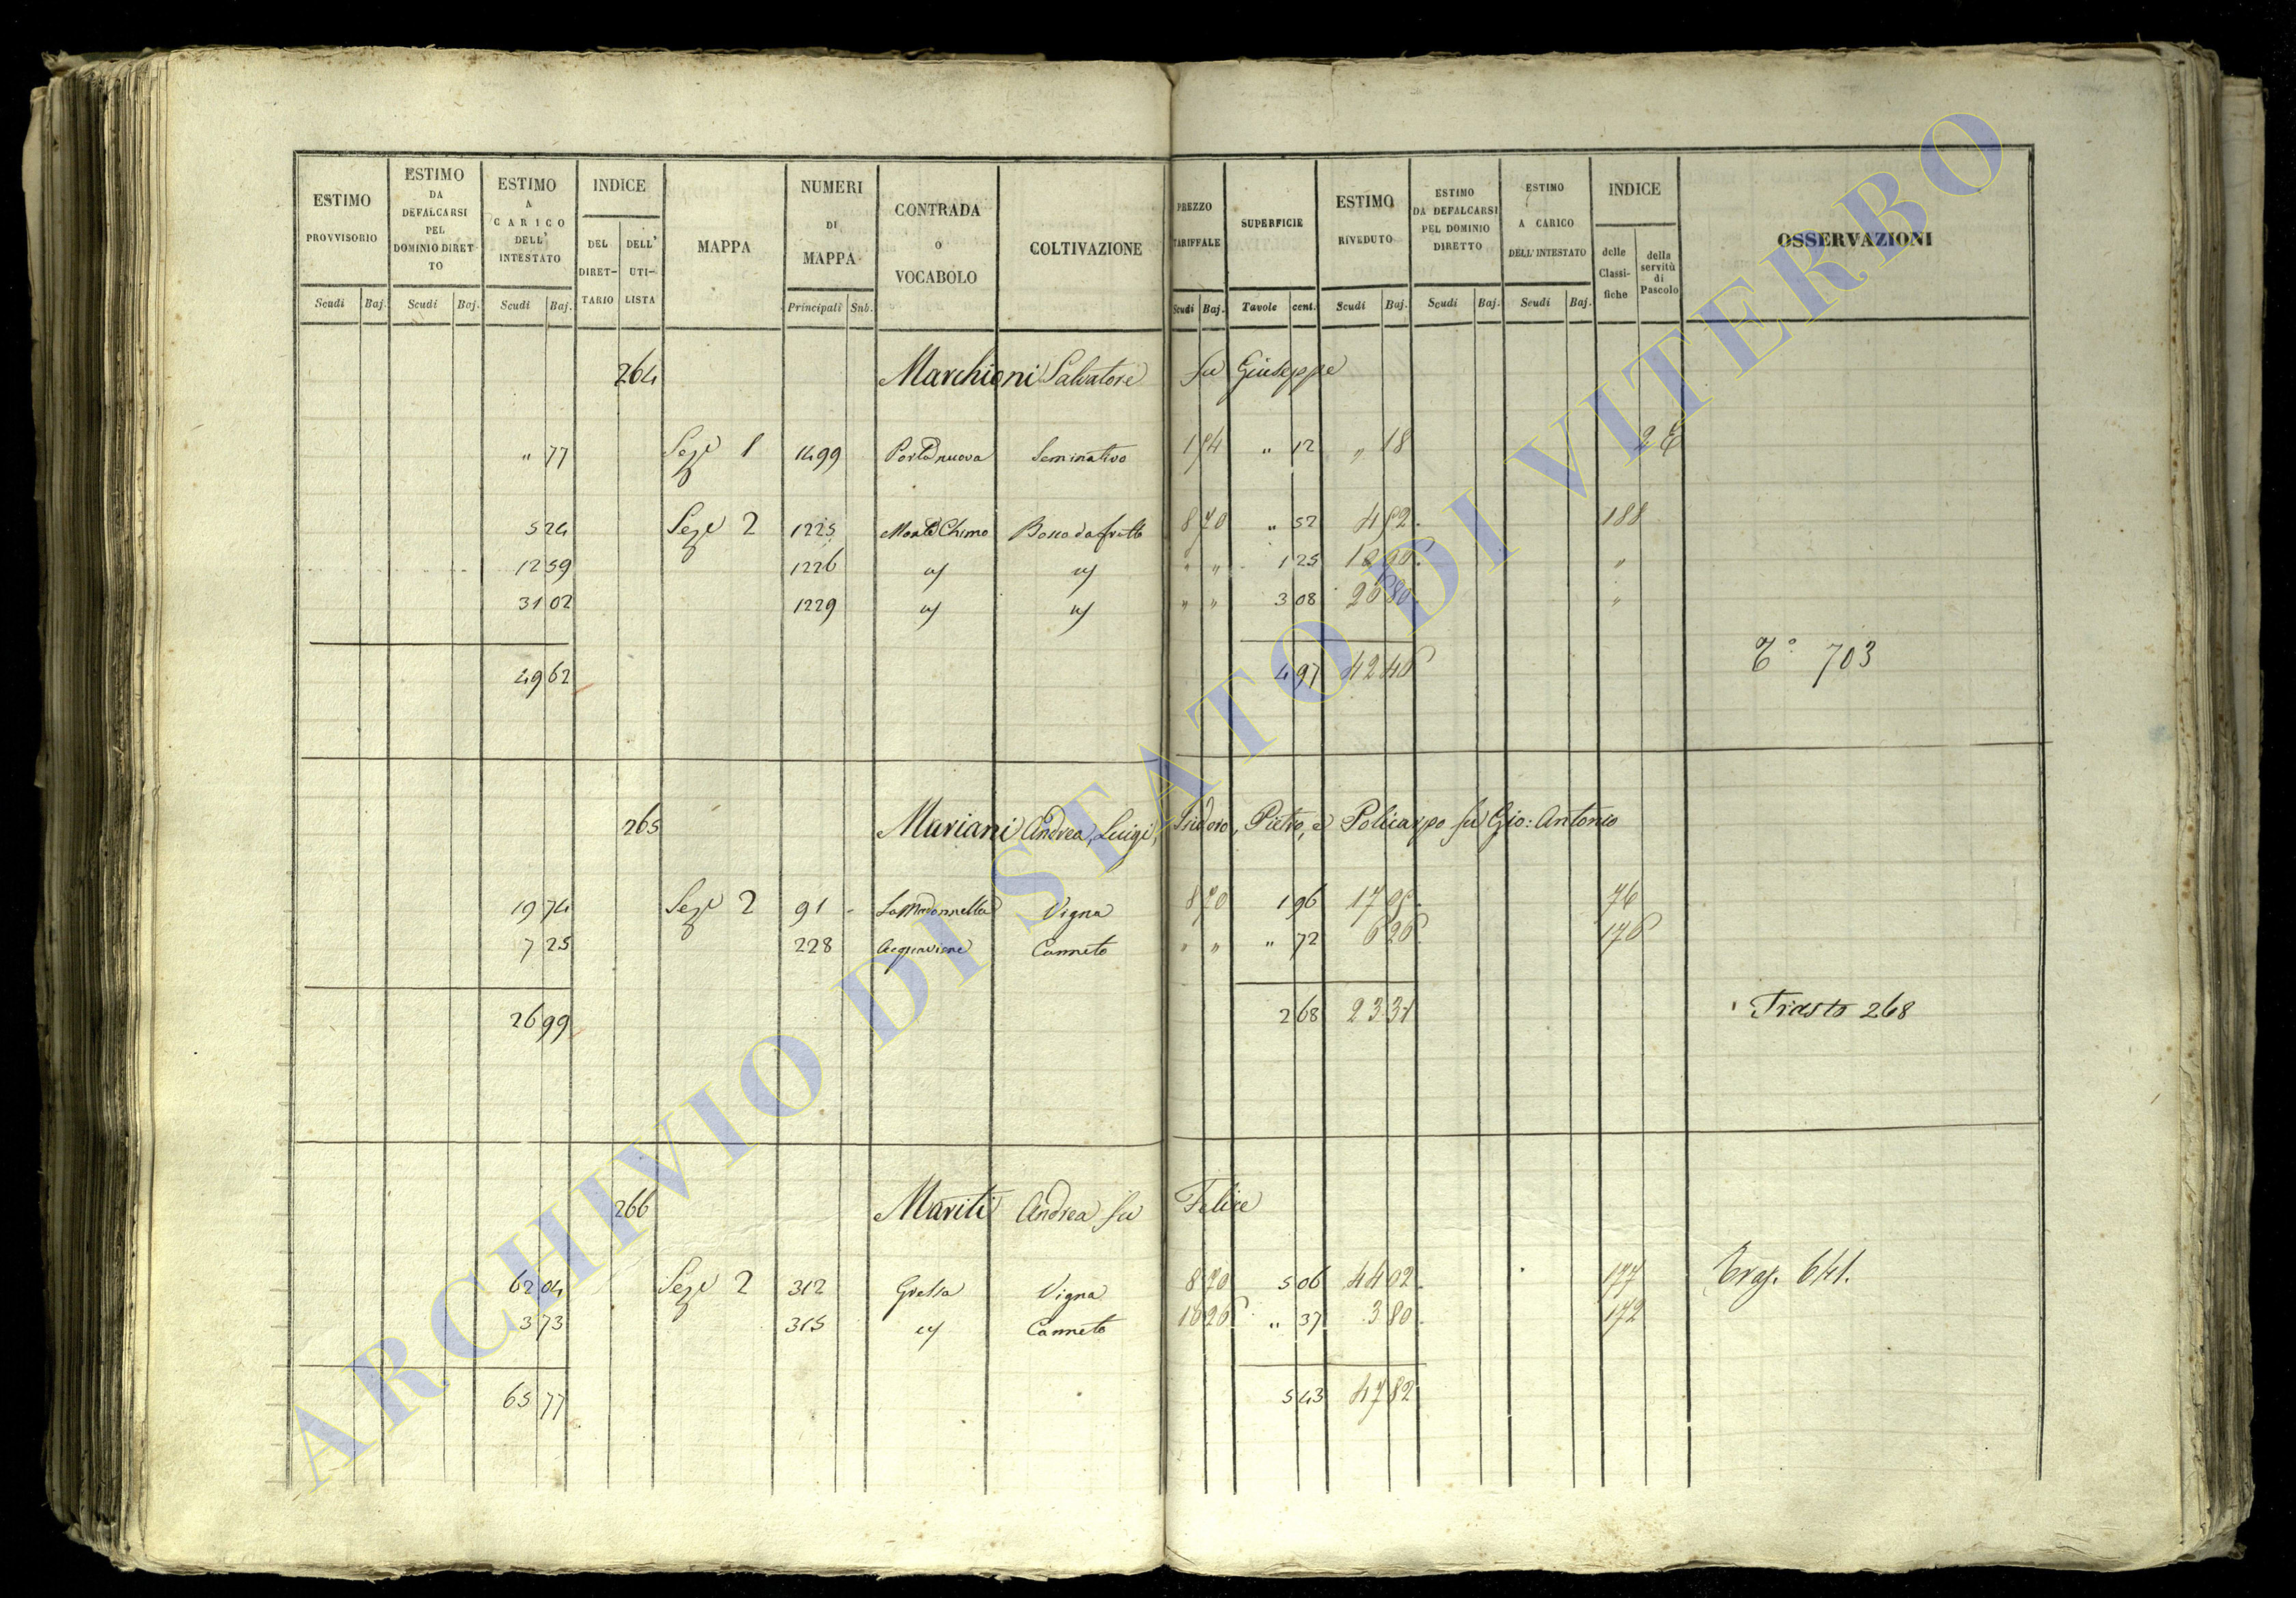 ESTIMO PROVVISORIO | ESTIMO DA DEFALCARSI PEL DOMINIO DIRETTO | ESTIMO A CARICO DELL' INTESTATO | INDICE | MAPPA | NUMERI DI MAPPA | CONTRADA O VOCABOLO | COLTIVAZIONE | PREZZO TARIFFALE | SUPERFICIE | ESTIMO RIVEDUTO | ESTIMO DA DEFALCARSI PEL DOMINIO DIRETTO | ESTIMO A CARICO DELL'INTESTATO | INDICE | OSSERVAZIONI
DEL DIRET-TARIO | DELL' UTI-LISTA | delle Classi-fiche | della servitù di Pascolo
Scudi | Baj. | Scudi | Baj. | Scudi | Baj. | Principali | Sub. | Scudi | Baj. | Tavole | cent. | Scudi | Baj. | Scudi | Baj. | Scudi | Baj.
264 Marchioni Salvatore fu Giuseppe
" 77 Sezе 1 1499 Porta nuova Seminativo 1 54 " 12 " 18 2
5 24 Seze 2 1225 Monte Chimo Bosco da frutto 8 70 " 52 4 52 188
12 59 1226 " " " " 1 25 10 90 "
31 02 1229 " " " " 3 08 26 80 "
49 62 4 97 42 40 T° 703
265 Mariani Andrea, Luigi, Isidoro, Pietro, e Policarpo fu Gio: Antonio
19 74 Seze 2 91 La Madonnella Vigna 8 70 1 96 17 05 76
7 25 228 Canneto " " " 72 6 26 176
26 99 2 68 23 31 Trasto 268
266 Mariti Andrea fu Felice
62 04 Seze 2 312 Vigna 8 70 5 06 44 02 177 Trasp. 641.
3 73 315 " Canneto 10 26 " 37 3 80 172
65 77 5 43 47 82
ARCHIVIO DI STATO DI VITERBO